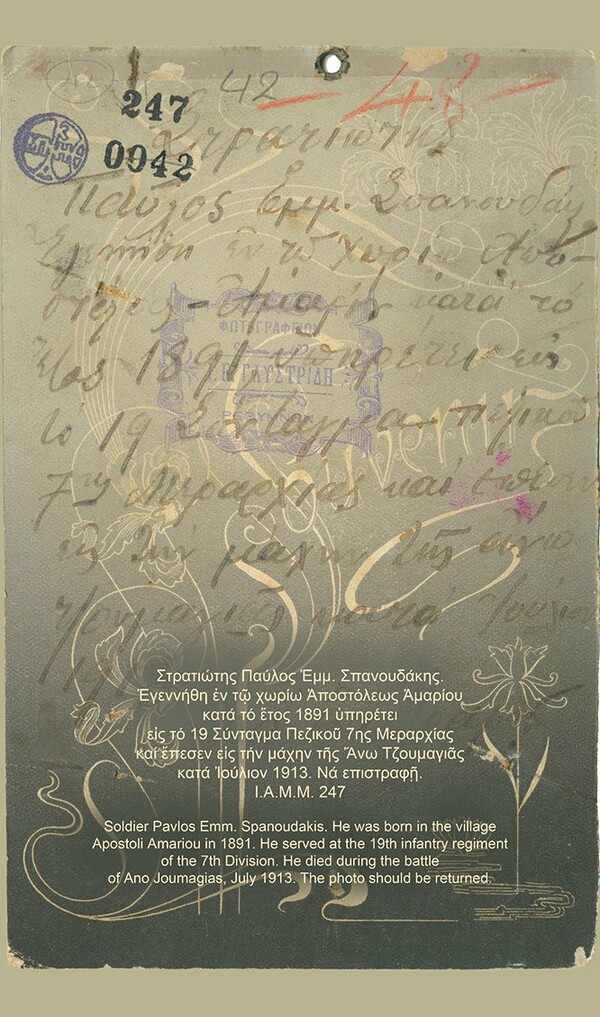 42 - 48 -
247
0042
Στρατιώτης
Παῦλος Ἐμμ. Σπανουδάκ
ἐν τῷ χωρίῳ Ἀπο-
στόλεως - Ἀμαρίου κατὰ τό
ἔτος 1891 ὑπηρέτει εἰς
τό 19 Σύνταγμα πεζικοῦ
7ης Μεραρχίας καί ἔπεσεν
εἰς τήν μάχην τῆς ἄνω
Τζουμαγιᾶς κατά Ἰούλιον
ΦΩΤΟΓΡΑΦΕΙΟΝ
ΡΕΘΥΜΝΟΝ
Souvenir
Στρατιώτης Παῦλος Ἐμμ. Σπανουδάκης.
Ἐγεννήθη ἐν τῷ χωρίω Ἀποστόλεως Ἀμαρίου
κατά τό ἔτος 1891 ὑπηρέτει
εἰς τό 19 Σύνταγμα Πεζικοῦ 7ης Μεραρχίας
καί ἔπεσεν εἰς τήν μάχην τῆς Ἄνω Τζουμαγιᾶς
κατά Ἰούλιον 1913. Νά επιστραφῇ.
Ι.Α.Μ.Μ. 247
Soldier Pavlos Emm. Spanoudakis. He was born in the village
Apostoli Amariou in 1891. He served at the 19th infantry regiment
of the 7th Division. He died during the battle
of Ano Joumagias, July 1913. The photo should be returned.